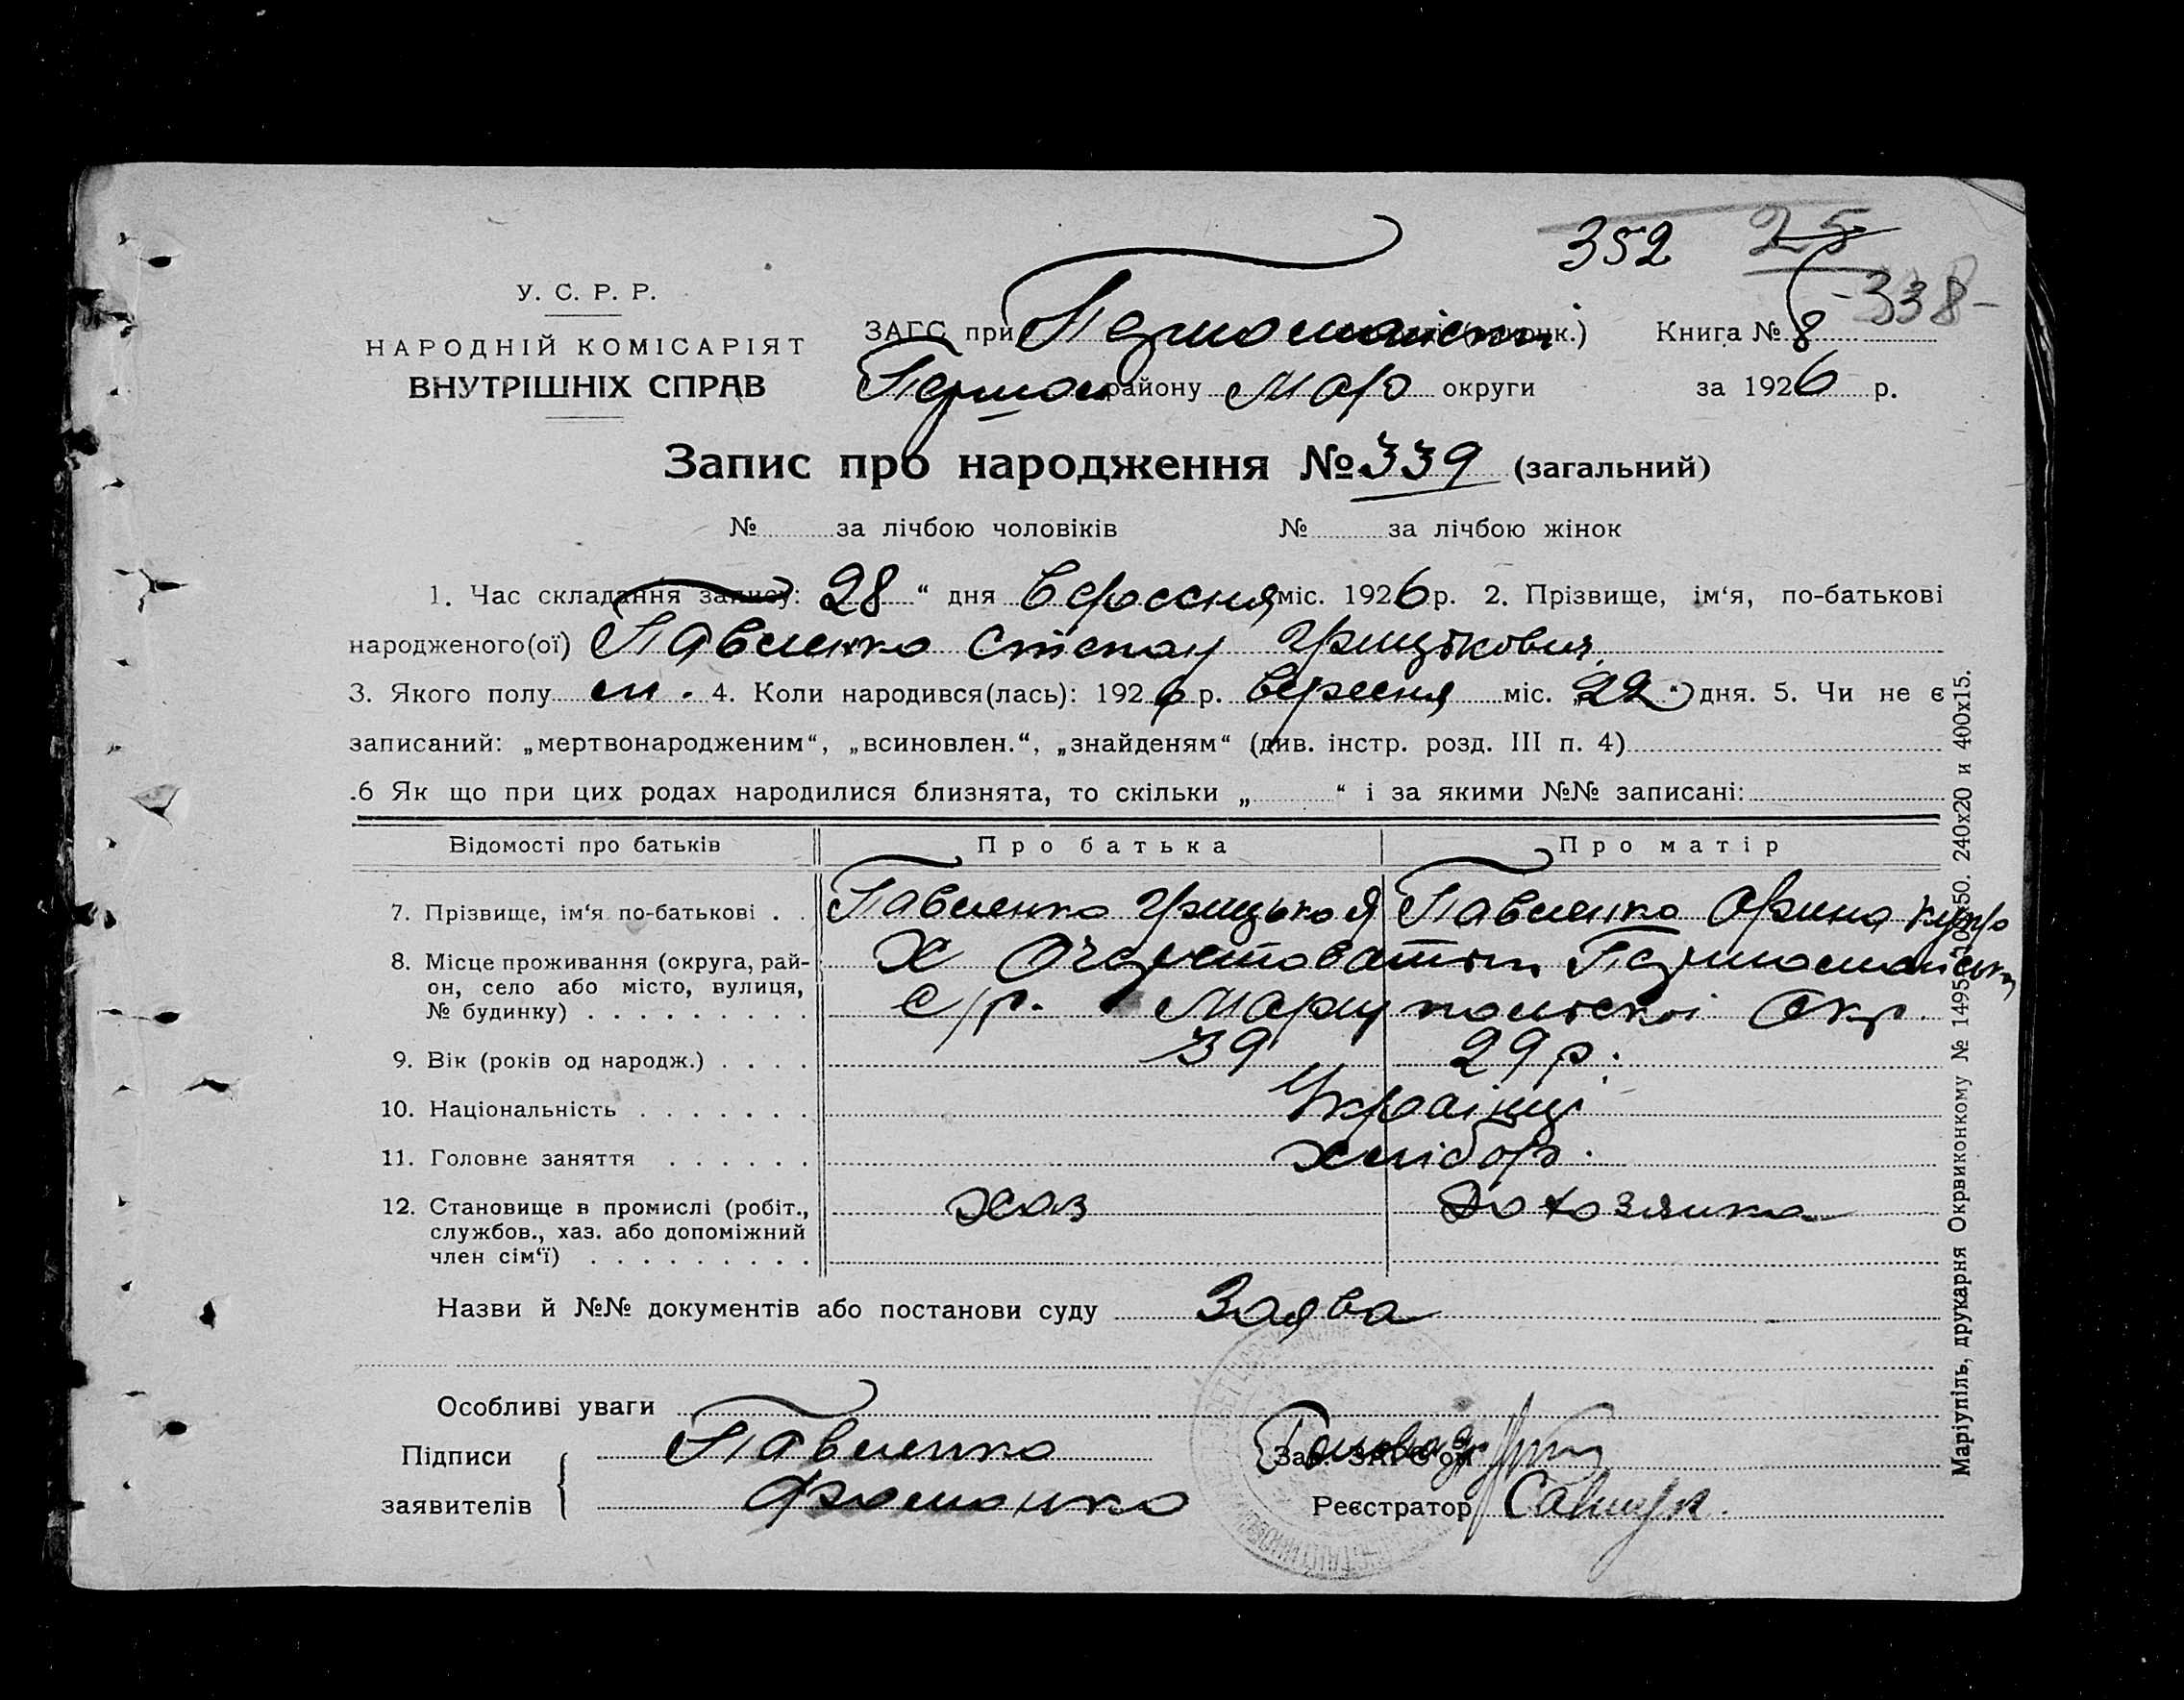 352 25
-338-
У. С. Р. Р.
НАРОДНІЙ КОМІСАРІЯТ
ВНУТРІШНІХ СПРАВ
ЗАГС при Книга № 8
району Мар округи за 1926 р.
Запис про народження № 339 (загальний)
№ за лічбою чоловіків № за лічбою жінок
1. Час складання запису: 28 “ дня Вересня міс. 1926 р. 2. Прізвище, ім‘я, по-батькові
народженого(ої) Павленко Степан Грицькович
3. Якого полу м. 4. Коли народився(лась): 1926 р. Вересня міс. „22“ дня. 5. Чи не є
записаний: „мертвонародженим“, „всиновлен.“, „знайденям“ (див. інстр. розд. III п. 4)
.6 Як що при цих родах народилися близнята, то скільки „ “ і за якими №№ записані:
Відомості про батьків Про батька Про матір
7. Прізвище, ім‘я по-батькові . . Павленко Грицько Я Павленко Орина
8. Місце проживання (округа, рай- Х
он, село або місто, вулиця, с/р. Маріупольскоі Окр
№ будинку) . . . . . . . . .
9. Вік (років од народж.) . . . . 39 29 р.
10. Національність . . . . . . . Украінці
11. Головне заняття . . . . . . хлібор.
12. Становище в промислі (робіт., хаз Дохозяика
службов., хаз. або допоміжний
член сім‘ї) . . . . . . . . .
Назви й №№ документів або постанови суду Заява
Особливі уваги
Підписи Павленко Зав. ЗАГС‘ом
заявителів Фоменко Реєстратор
Маріупіль, друкарня Окрвиконкому № 1495 50. 240х20 и 400х15.